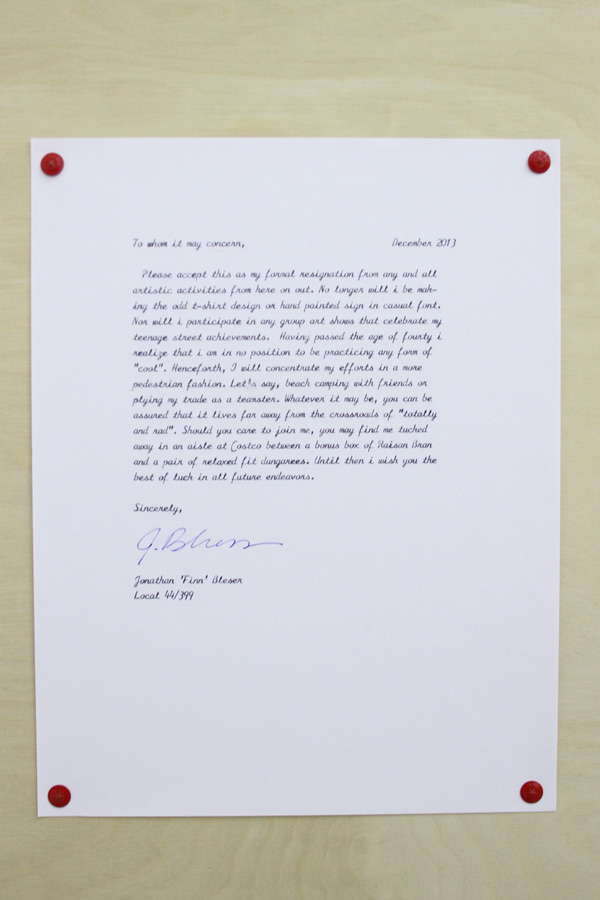 To whom it may concern, December 2013
Please accept this as my formal resignation from any and all
artistic activities from here on out. No longer will i be mak-
ing the odd t-shirt design or hand painted sign in casual font.
Nor will i participate in any group art shows that celebrate my
teenage street achievements. Having passed the age of fourty i
realize that i am in no position to be practicing any form of
"cool". Henceforth, I will concentrate my efforts in a more
pedestrian fashion. Let's say, beach camping with friends or
plying my trade as a teamster. Whatever it may be, you can be
assured that it lives far away from the crossroads of "totally
and rad". Should you care to join me, you may find me tucked
away in an aisle at Costco between a bonus box of Raisan Bran
and a pair of relaxed fit dungarees. Until then i wish you the
best of luck in all future endeavors.
Sincerely,
J. Bleser
Jonathan 'Finn' Bleser
Local 44/399